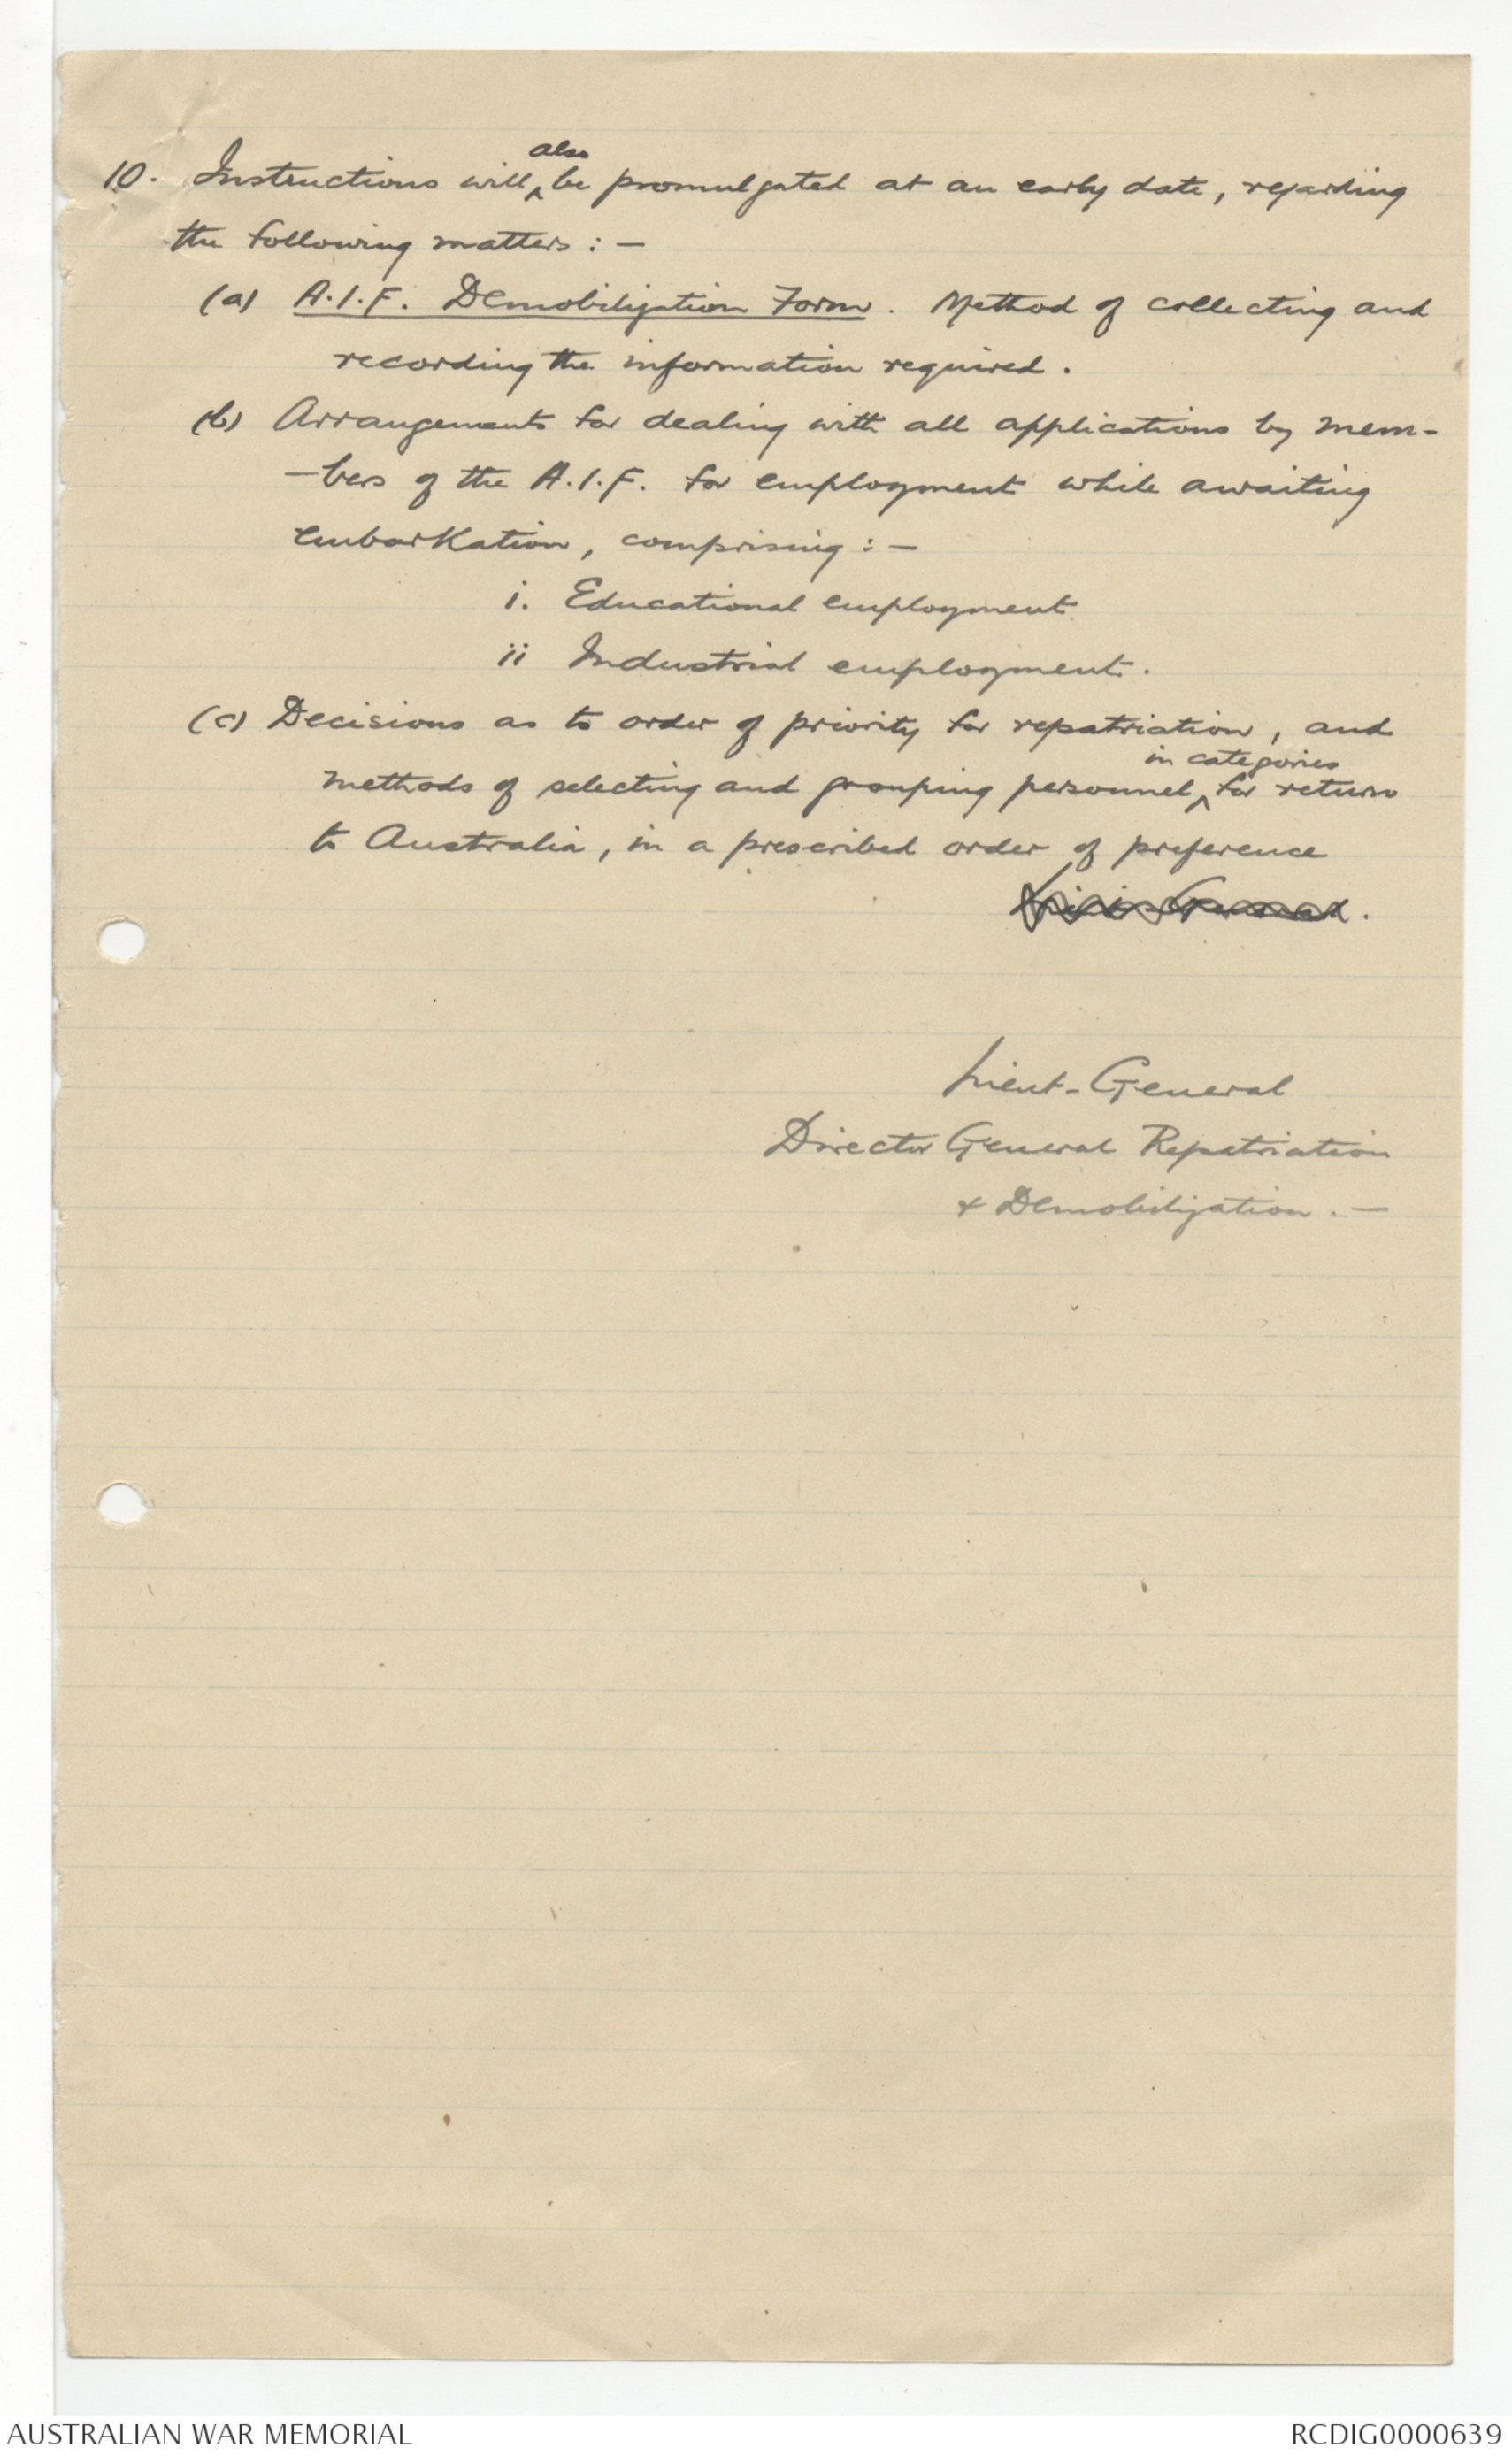 10. Instructions will ^also be promulgated at an early date, regarding
the following matters : —
(a) A.I.F. Demobilization Form. Method of collecting and
recording the information required.
(b) Arrangements for dealing with all applications by mem-
-bers of the A.I.F. for employment while awaiting
embarkation, comprising : —
i. Educational employment.
ii Industrial employment.
(c) Decisions as to order of priority for repatriation, and
methods of selecting and grouping personnel ^in categories for return
to Australia, in a prescribed order of preference
Lieut-General
Director General Repatriation
& Demobilization. —
AUSTRALIAN WAR MEMORIAL
RCDIG0000639